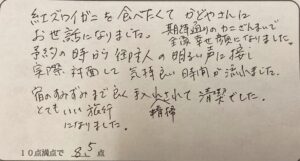 紅ズワイガニを食べたくてかどやさんに
お世話になりました。期待通りのカニざんまいで
全員幸せ顔になりました。
予約の時から御主人の明るい声に接し
実際対面して気持良い時間が流れました。
宿のすみずみまで良く手入れされて清潔でした。
とてもいい旅行
になりました。
10点満点で 8.5 点